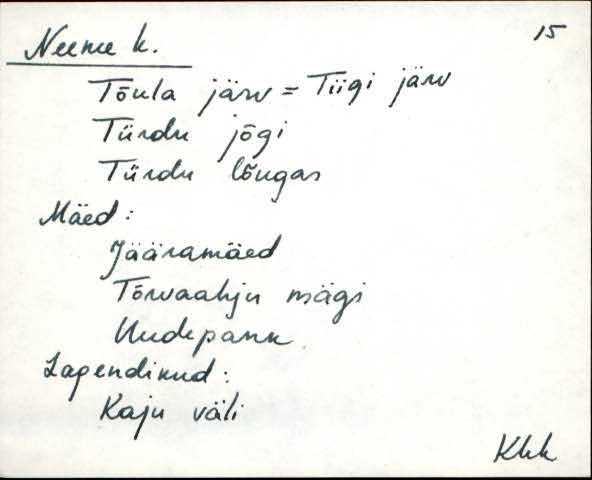 Neeme k.
15
Tõula järv = Tiigi järv
Türdu jõgi
Türdu lõugas
Mäed:
Jääramäed
Tõrvaahju mägi
Uudepank
Lagendikud:
Kaju väli
Khk